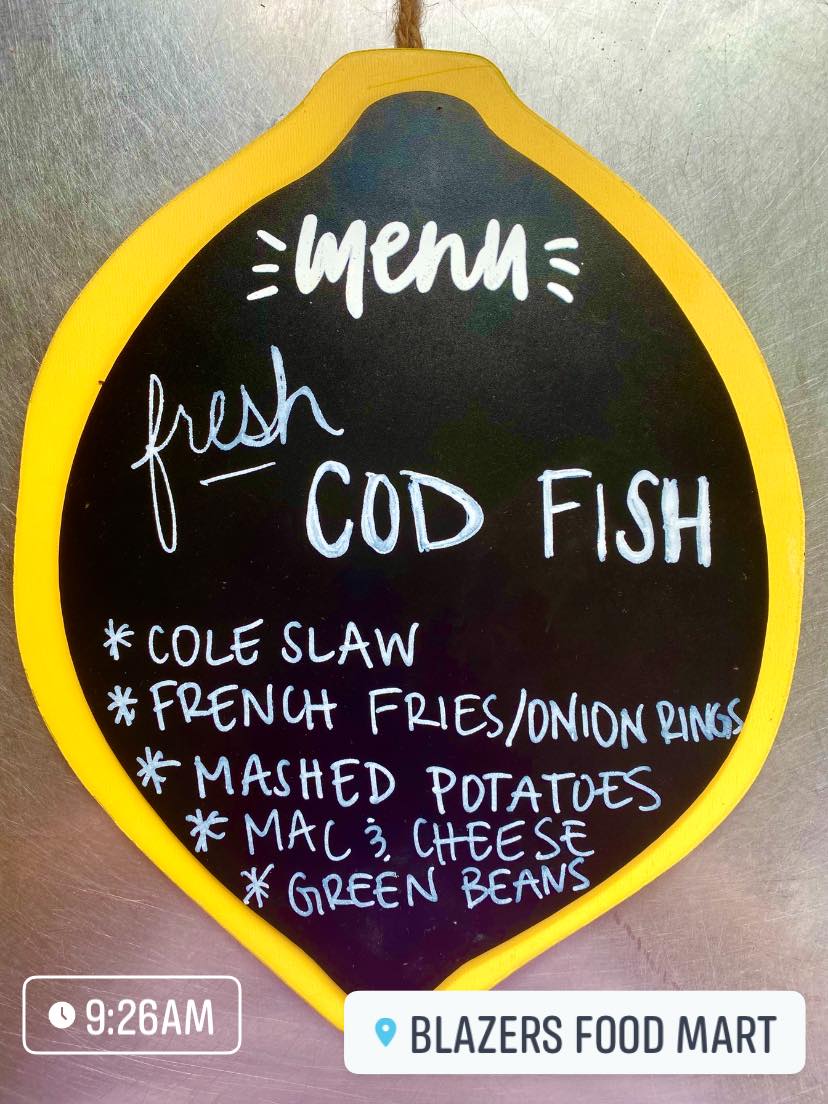 menu
fresh
COD FISH
* COLE SLAW
* FRENCH FRIES/ONION RINGS
* MASHED POTATOES
* MAC & CHEESE
* GREEN BEANS
9:26AM
BLAZERS FOOD MART